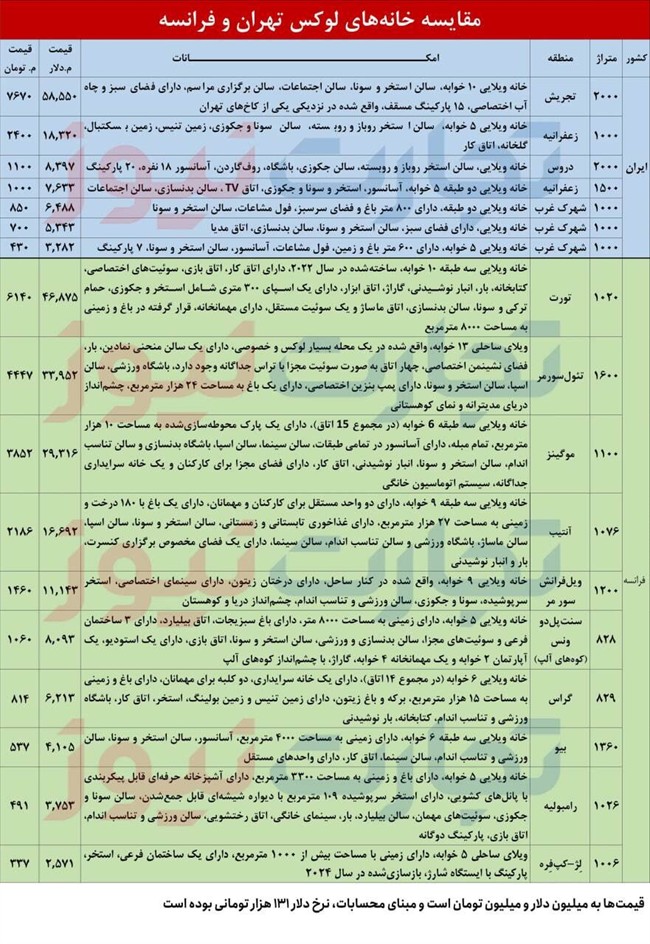 مقایسه خانه‌های لوکس تهران و فرانسه
کشور متراژ منطقه امکانات قیمت م.دلار قیمت م. تومان
ایران
۲۰۰۰ تجریش خانه ویلایی ۱۰ خوابه، سالن استخر و سونا، سالن اجتماعات، سالن برگزاری مراسم، دارای فضای سبز و چاه ۵۸,۵۵۰ ۷۶۷۰
آب اختصاصی، ۱۵ پارکینگ مسقف، واقع شده در نزدیکی یکی از کاخ‌های تهران
۱۰۰۰ زعفرانیه خانه ویلایی ۵ خوابه، سالن استخر روباز و روبسته، سالن سونا و جکوزی، زمین تنیس، زمین بسکتبال، ۱۸,۳۲۰ ۲۴۰۰
گلخانه، اتاق کار
۲۰۰۰ دروس خانه ویلایی، سالن استخر روباز و روبسته، سالن جکوزی، باشگاه، روف‌گاردن، آسانسور ۱۸ نفره، ۲۰ پارکینگ ۸,۳۹۷ ۱۱۰۰
۱۵۰۰ زعفرانیه خانه ویلایی دو طبقه ۵ خوابه، آسانسور، استخر و سونا و جکوزی، اتاق TV ، سالن بدنسازی، سالن اجتماعات ۷,۶۳۳ ۱۰۰۰
۱۰۰۰ شهرک غرب خانه ویلایی دو طبقه، دارای ۸۰۰ متر باغ و فضای سرسبز، فول مشاعات، سالن استخر و سونا ۶,۴۸۸ ۸۵۰
۱۰۰۰ شهرک غرب خانه ویلایی، دارای فضای سبز، سالن استخر و سونا، سالن بدنسازی، اتاق مدیا ۵,۳۴۳ ۷۰۰
۱۰۰۰ شهرک غرب خانه ویلایی ۵ خوابه، دارای ۶۰۰ متر باغ و زمین، فول مشاعات، آسانسور، سالن استخر و سونا، ۷ پارکینگ ۳,۲۸۲ ۴۳۰
فرانسه
۱۰۲۰ تورت خانه ویلایی سه طبقه ۱۰ خوابه، ساخته‌شده در سال ۲۰۲۲، دارای اتاق کار، اتاق بازی، سوئیت‌های اختصاصی، ۴۶,۸۷۵ ۶۱۴۰
کتابخانه، بار، انبار نوشیدنی، گاراژ، اتاق ابزار، دارای یک اسپای ۳۰۰ متری شامل استخر و جکوزی، حمام
ترکی و سونا، سالن بدنسازی، اتاق ماساژ و یک سوئیت مستقل، دارای مهمانخانه، قرار گرفته در باغ و زمینی
به مساحت ۸۰۰۰ مترمربع
۱۶۰۰ تئول‌سورمر ویلای ساحلی ۱۳ خوابه، واقع شده در یک محله بسیار لوکس و خصوصی، دارای یک سالن منحنی نمادین، بار، ۳۳,۹۵۲ ۴۴۴۷
فضای نشیمن اختصاصی، چهار اتاق به صورت سوئیت مجزا با تراس جداگانه وجود دارد، باشگاه ورزشی، سالن
اسپا، سالن استخر و سونا، دارای پمپ بنزین اختصاصی، دارای یک باغ به مساحت ۲۴ هزار مترمربع، چشم‌انداز
دریای مدیترانه و نمای کوهستانی
۱۱۰۰ موگینز خانه ویلایی سه طبقه 6 خوابه (در مجموع 15 اتاق)، دارای یک پارک محوطه‌سازی‌شده به مساحت ۱۰ هزار ۲۹,۳۱۶ ۳۸۵۲
مترمربع، تمام مبله، دارای آسانسور در تمامی طبقات، سالن سینما، سالن اسپا، باشگاه بدنسازی و سالن تناسب
اندام، سالن استخر و سونا، انبار نوشیدنی، اتاق کار، دارای فضای مجزا برای کارکنان و یک خانه سرایداری
جداگانه، سیستم اتوماسیون خانگی
۱۰۷۶ آنتیب خانه ویلایی سه طبقه ۹ خوابه، دارای دو واحد مستقل برای کارکنان و مهمانان، دارای یک باغ با ۱۸۰ درخت و ۱۶,۶۹۲ ۲۱۸۶
زمینی به مساحت ۲۷ هزار مترمربع، دارای غذاخوری تابستانی و زمستانی، سالن استخر و سونا، سالن اسپا،
سالن ماساژ، باشگاه ورزشی و سالن تناسب اندام، سالن سینما، دارای یک فضای مخصوص برگزاری کنسرت،
بار و انبار نوشیدنی
۱۲۰۰ ویل‌فرانش سور مر خانه ویلایی ۹ خوابه، واقع شده در کنار ساحل، دارای درختان زیتون، دارای سینمای اختصاصی، استخر ۱۱,۱۴۳ ۱۴۶۰
سرپوشیده، سونا و جکوزی، سالن ورزشی و تناسب اندام، چشم‌انداز دریا و کوهستان
۸۲۸ سنت‌پل‌دو ونس (کوه‌های آلپ) خانه ویلایی ۵ خوابه، دارای زمینی به مساحت ۸۰۰۰ متر، دارای باغ سبزیجات، اتاق بیلیارد، دارای ۳ ساختمان ۸,۰۹۳ ۱۰۶۰
فرعی و سوئیت‌های مجزا، سالن بدنسازی و ورزشی، سالن استخر و سونا، اتاق بازی، دارای یک استودیو، یک
آپارتمان ۲ خوابه و یک مهمانخانه ۴ خوابه، گاراژ، با چشم‌انداز کوه‌های آلپ
۸۲۹ گراس خانه ویلایی ۶ خوابه (در مجموع ۱۴ اتاق)، دارای یک خانه سرایداری، دو کلبه برای مهمانان، دارای باغ و زمینی ۶,۲۱۳ ۸۱۴
به مساحت ۱۵ هزار مترمربع، برکه و باغ زیتون، دارای زمین تنیس و زمین بولینگ، استخر، اتاق کار، باشگاه
ورزشی و تناسب اندام، کتابخانه، بار نوشیدنی
۱۳۶۰ بیو خانه ویلایی سه طبقه ۶ خوابه، دارای باغ و زمینی به مساحت ۴۰۰۰ مترمربع، آسانسور، سالن استخر و سونا، سالن ۴,۱۰۵ ۵۳۷
ورزشی و تناسب اندام، سالن سینما، اتاق کار، دارای واحدهای مستقل
۱۰۲۶ رامبولیه خانه ویلایی ۵ خوابه، دارای باغ و زمینی به مساحت ۳۳۰۰ مترمربع، دارای آشپزخانه حرفه‌ای قابل پیکربندی ۳,۷۵۳ ۴۹۱
با پانل‌های کشویی، دارای استخر سرپوشیده ۱۰۹ مترمربع با دیواره شیشه‌ای قابل جمع‌شدن، سالن سونا و
جکوزی، سوئیت‌های مهمان، سالن بیلیارد، بار، سینمای خانگی، اتاق رختشویی، سالن ورزشی و تناسب اندام،
اتاق بازی، پارکینگ دوگانه
۱۰۰۶ لژ-کپ‌فره ویلای ساحلی ۵ خوابه، دارای زمینی با مساحت بیش از ۱۰۰۰ مترمربع، دارای یک ساختمان فرعی، استخر، ۲,۵۷۱ ۳۳۷
پارکینگ با ایستگاه شارژ، بازسازی‌شده در سال ۲۰۲۴
قیمت‌ها به میلیون دلار و میلیون تومان است و مبنای محسابات، نرخ دلار ۱۳۱ هزار تومانی بوده است
تجارت نیوز